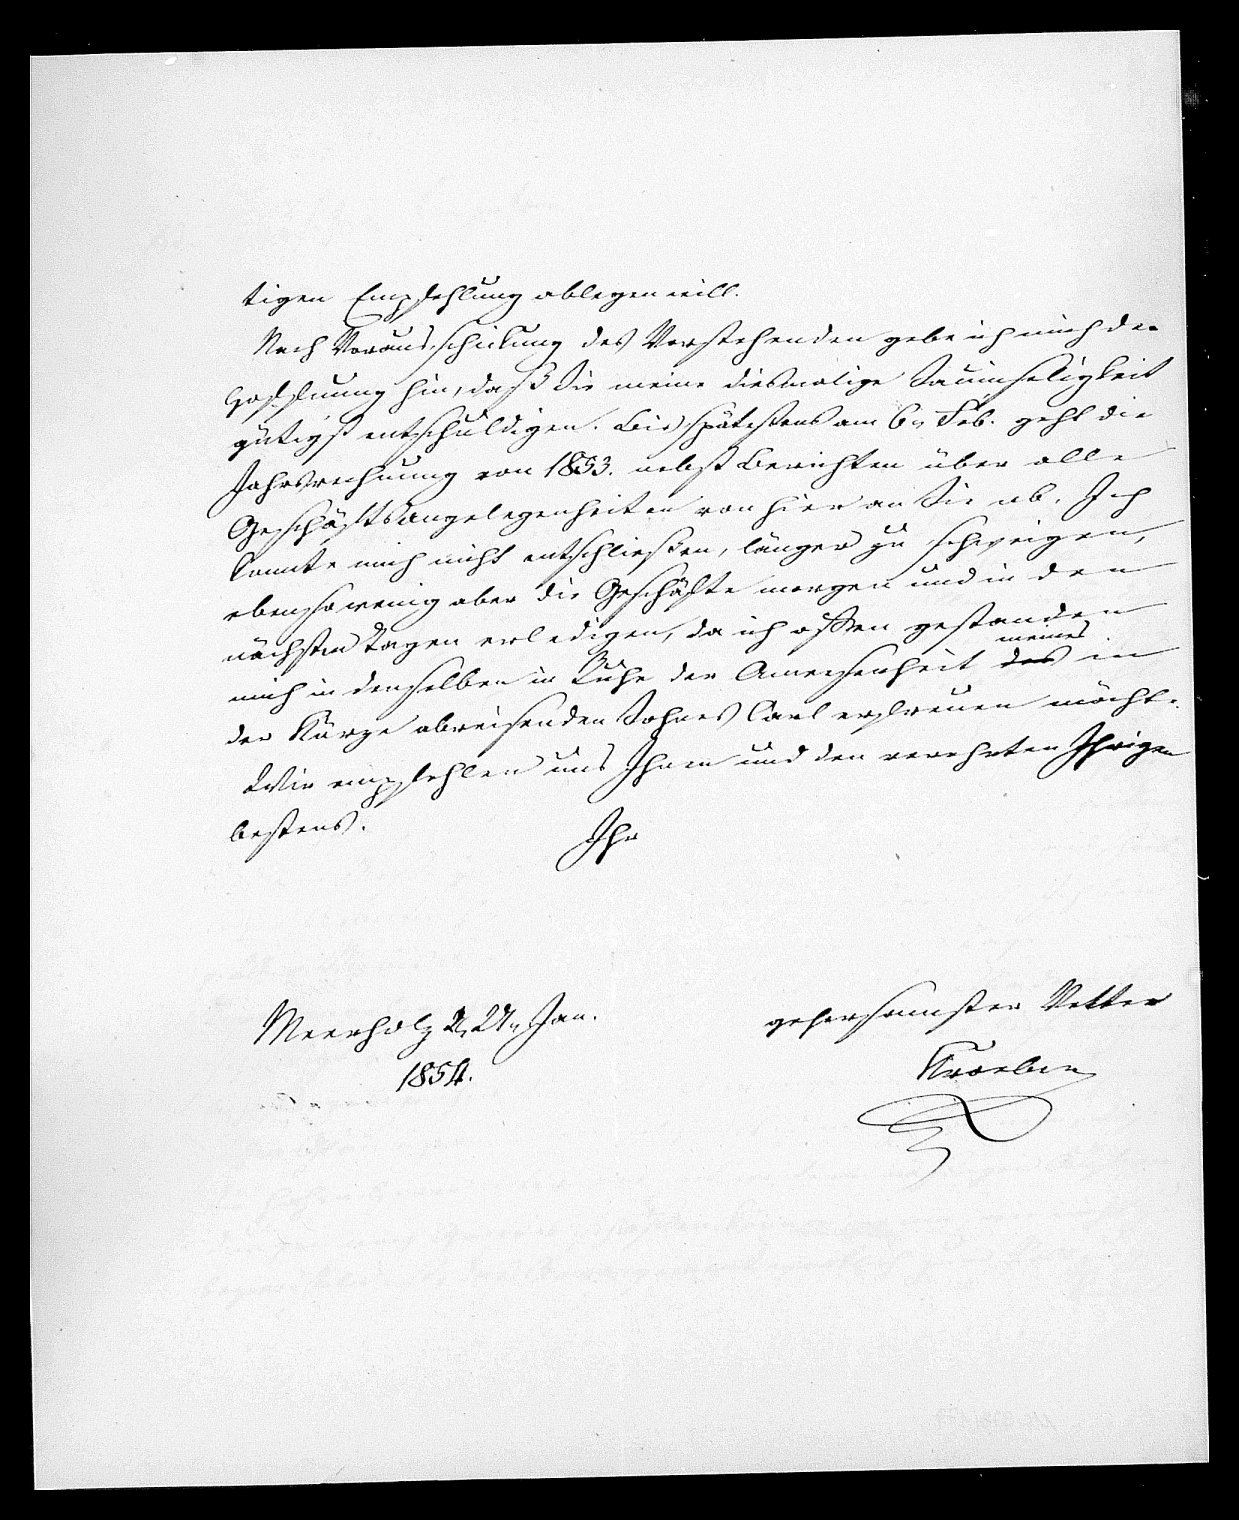 tigen Empfehlung ablegen will.
Nach Vorausschickung des Vorstehenden gebe ich mich der
Hoffnung hin, daß Sie meine diesmalige Saumseligkeit
gütigst entschuldigen. Bis spätestens am 6n Feb. geht die
Jahrsrechnung von 1853. nebst Berichten über alle
Geschäftsangelegenheiten von hier an Sie ab. Ich
konnte mich nicht entschließen, länger zu schweigen,
ebensowenig aber die Geschäfte morgen und in den
nächsten Tagen erledigen, da ich offen gestanden
mich in denselben in Ruhe der Anwesenheit des meines in
der Kürze abreisenden Sohnes Carl erfreuen möchte.
Wir empfehlen uns Ihnen und den verehrten Ihrigen
bestens.
Ihr
gehorsamster Vetter
Meerholz Jan.
1854.
Kroeber